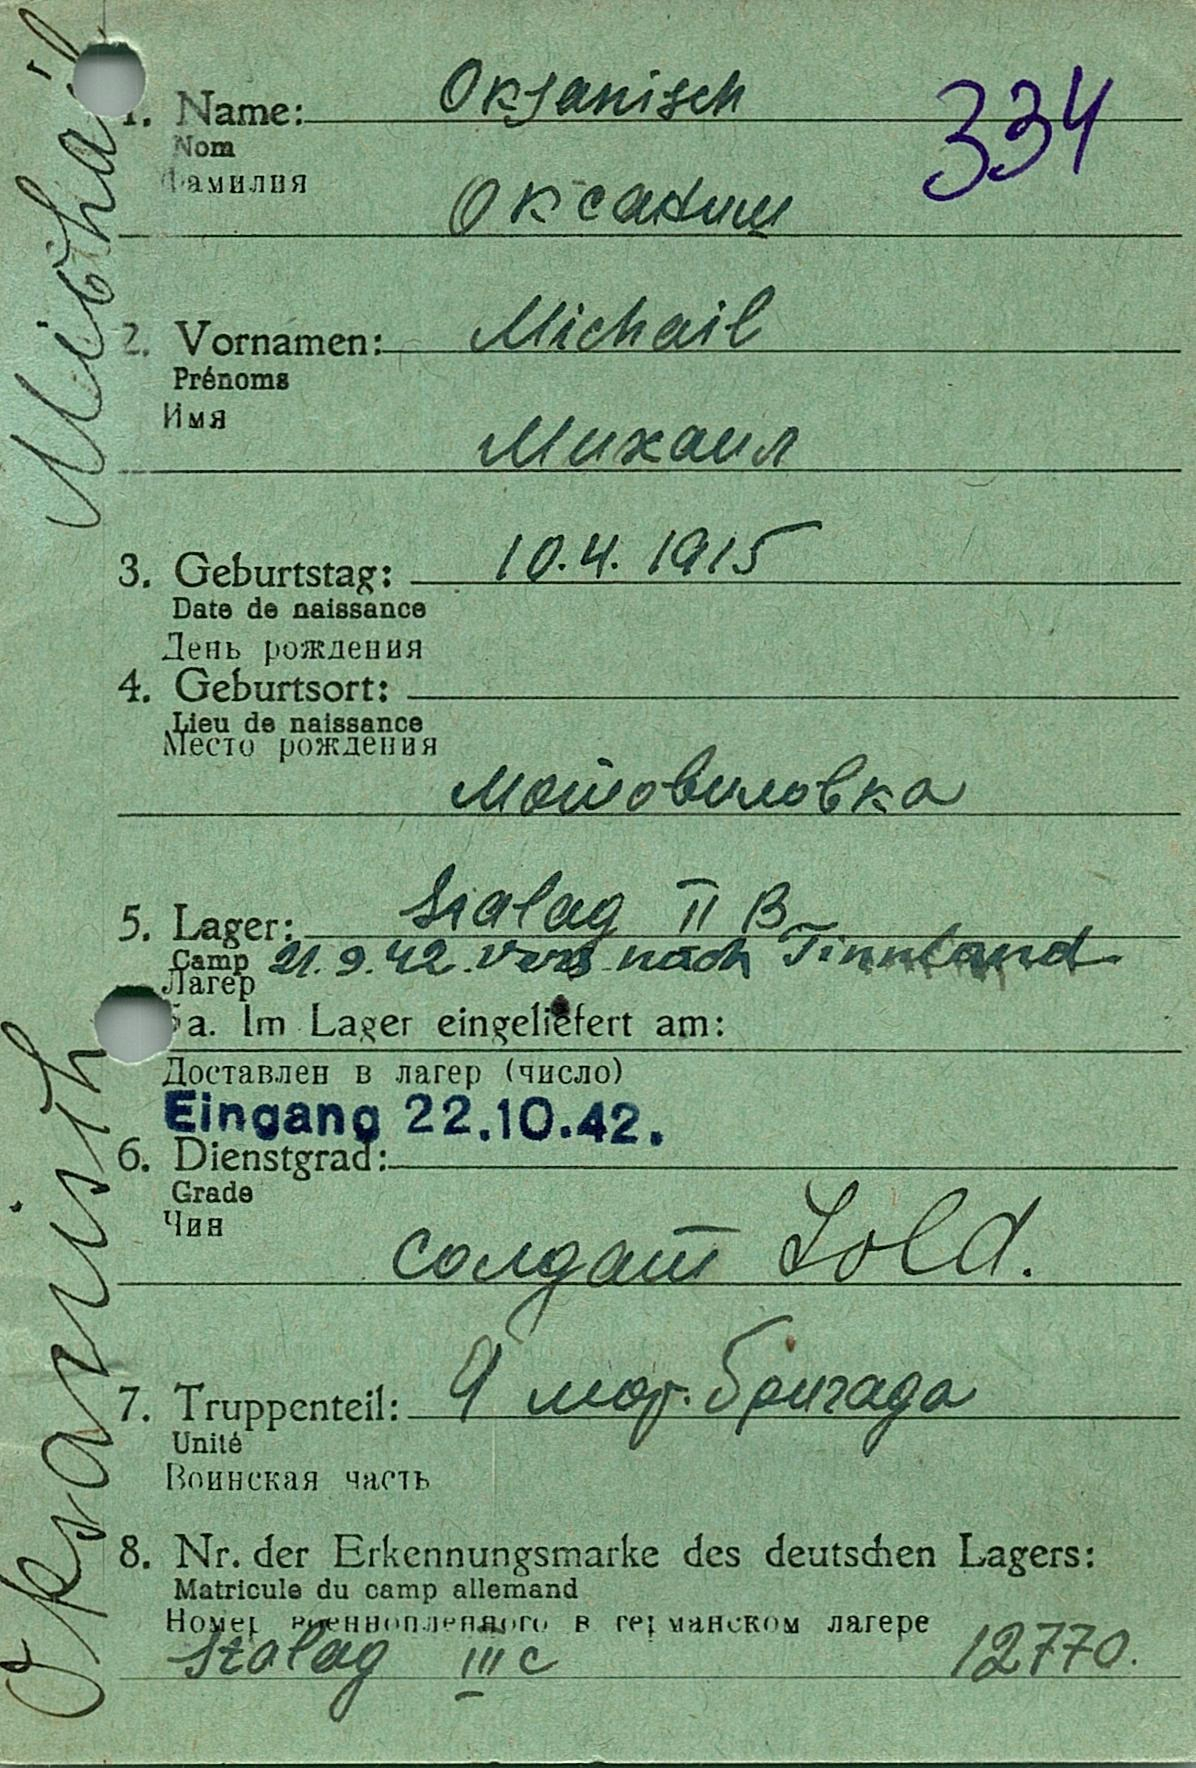 Michail
Oksanisch
1. Name: Oksanisch
334
Nom
Фамилия
Оксаниш
2. Vornamen: Michail
Prénoms
Имя
Михаил
3. Geburtstag: 10.4.1915
Date de naissance
День рождения
4. Geburtsort:
Lieu de naissance
Место рождения
Мотовиловка
5. Lager: Stalag II B
Camp 21.9.42. Vers nach Finnland
Лагер
5a. Im Lager eingeliefert am:
Доставлен в лагер (число)
Eingang 22.10.42.
6. Dienstgrad:
Grade
Чин
солдат Sold.
7. Truppenteil: 9 мор. бригада
Unité
Воинская часть
8. Nr. der Erkennungsmarke des deutschen Lagers:
Matricule du camp allemand
Номер военнопленного в германском лагере
Stalag III C 12770.